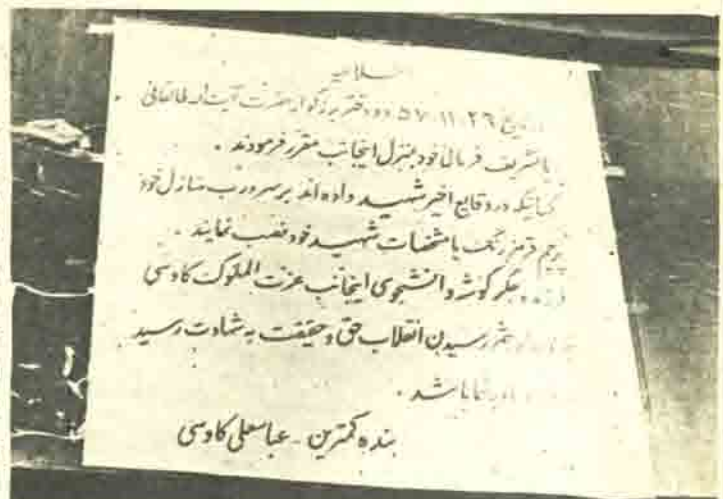 اطلاعیه
تاریخ ۵۷.۱۱.۲۶ دو دختر بزرگوار حضرت آیت اله طالقانی
با تشریف فرمائی خود بمنزل اینجانب مقرر فرمودند .
کسانیکه در وقایع اخیر شهید داده اند بر سر درب منازل خود
پرچم قرمز رنگ با مشخصات شهید خود نصب نمایند .
فرزند و جگر گوشه و دانشجوی اینجانب عزت الملوک کاوسی
بثمر رسیدن انقلاب حق و حقیقت به شهادت رسید
بنده کمترین - عباسعلی کاوسی